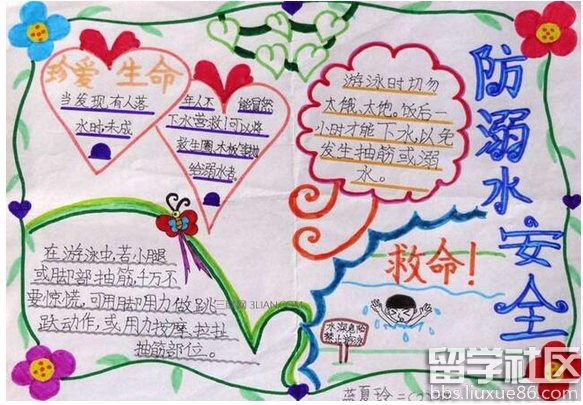 珍爱 生命
当发现有人落
水时,未成
年人不能冒然
下水营救!可以将
救生圈、木板等抛
给溺水者。
游泳时切勿
太饿、太饱。饭后一
小时才能下水,以免
发生抽筋或溺
水。
防溺水安全
在游泳中,若小腿
或脚部抽筋,千万不
要惊慌,可用脚用力做跳
跃动作,或用力按摩、拉扯
抽筋部位。
救命!
水深危险
禁止游泳
蓝夏玲
三联网 3LIAN.COM
留学社区
bbs.liuxue86.com